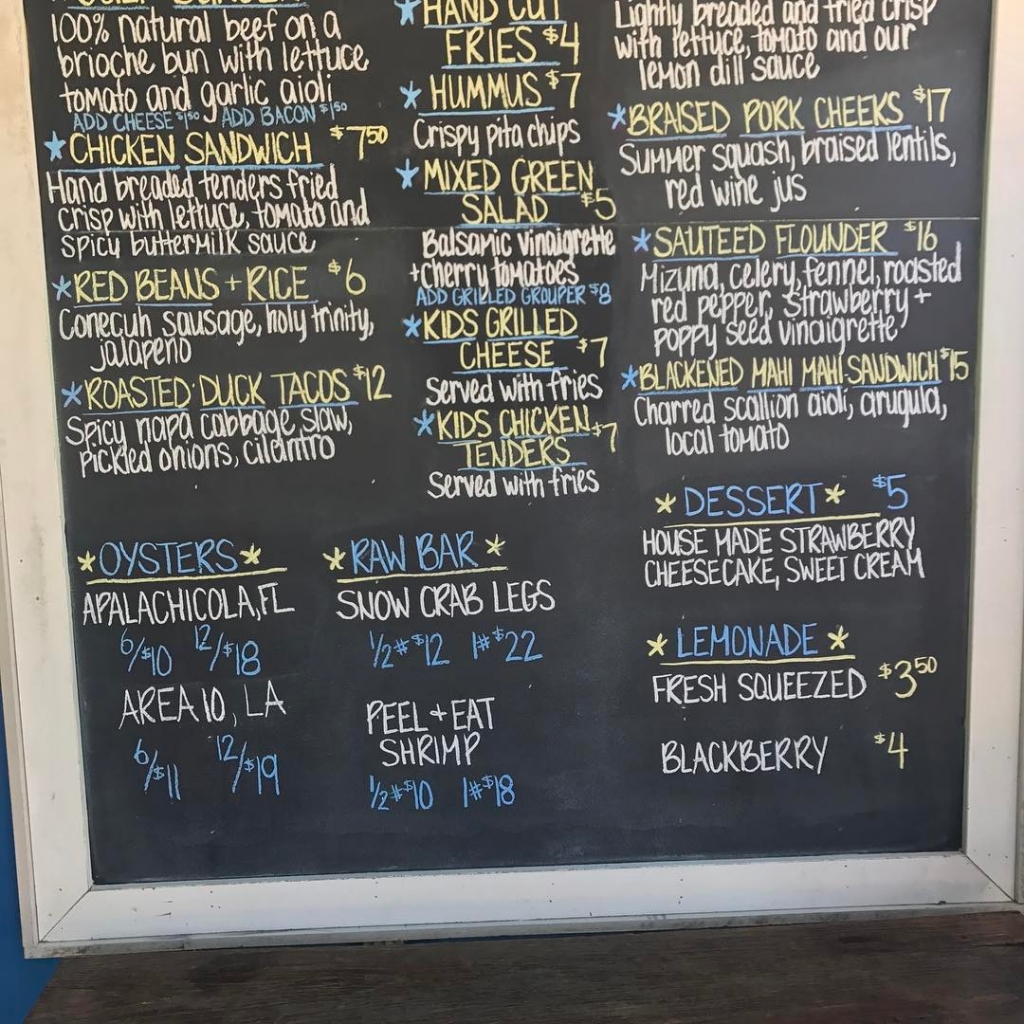 100% natural beef on a
brioche bun with lettuce
tomato and garlic aioli
ADD CHEESE $1.50 ADD BACON $1.50
*CHICKEN SANDWICH $7.50
Hand breaded tenders fried
crisp with lettuce, tomato and
spicy buttermilk sauce
*RED BEANS + RICE $6
Conecuh sausage, holy trinity,
jalapeño
*ROASTED DUCK TACOS $12
Spicy napa cabbage slaw,
pickled onions, cilantro
*HAND CUT
FRIES $4
*HUMMUS $7
Crispy pita chips
*MIXED GREEN
SALAD $5
Balsamic vinaigrette
+cherry tomatoes
ADD GRILLED GROUPER $8
*KIDS GRILLED
CHEESE $7
Served with fries
*KIDS CHICKEN
TENDERS $7
Served with fries
Lightly breaded and fried crisp
with lettuce, tomato and our
lemon dill sauce
*BRAISED PORK CHEEKS $17
Summer squash, braised lentils,
red wine jus
*SAUTEED FLOUNDER $16
Mizuna, celery, fennel, roasted
red pepper, strawberry +
poppy seed vinaigrette
*BLACKENED MAHI MAHI SANDWICH $15
Charred scallion aioli, arugula,
local tomato
*DESSERT* $5
HOUSE MADE STRAWBERRY
CHEESECAKE, SWEET CREAM
*LEMONADE*
FRESH SQUEEZED $3.50
BLACKBERRY $4
*OYSTERS*
APALACHICOLA, FL
6/$10 12/$18
AREA 10, LA
6/$11 12/$19
*RAW BAR*
SNOW CRAB LEGS
1/2# $12 1# $22
PEEL + EAT
SHRIMP
1/2# $10 1# $18